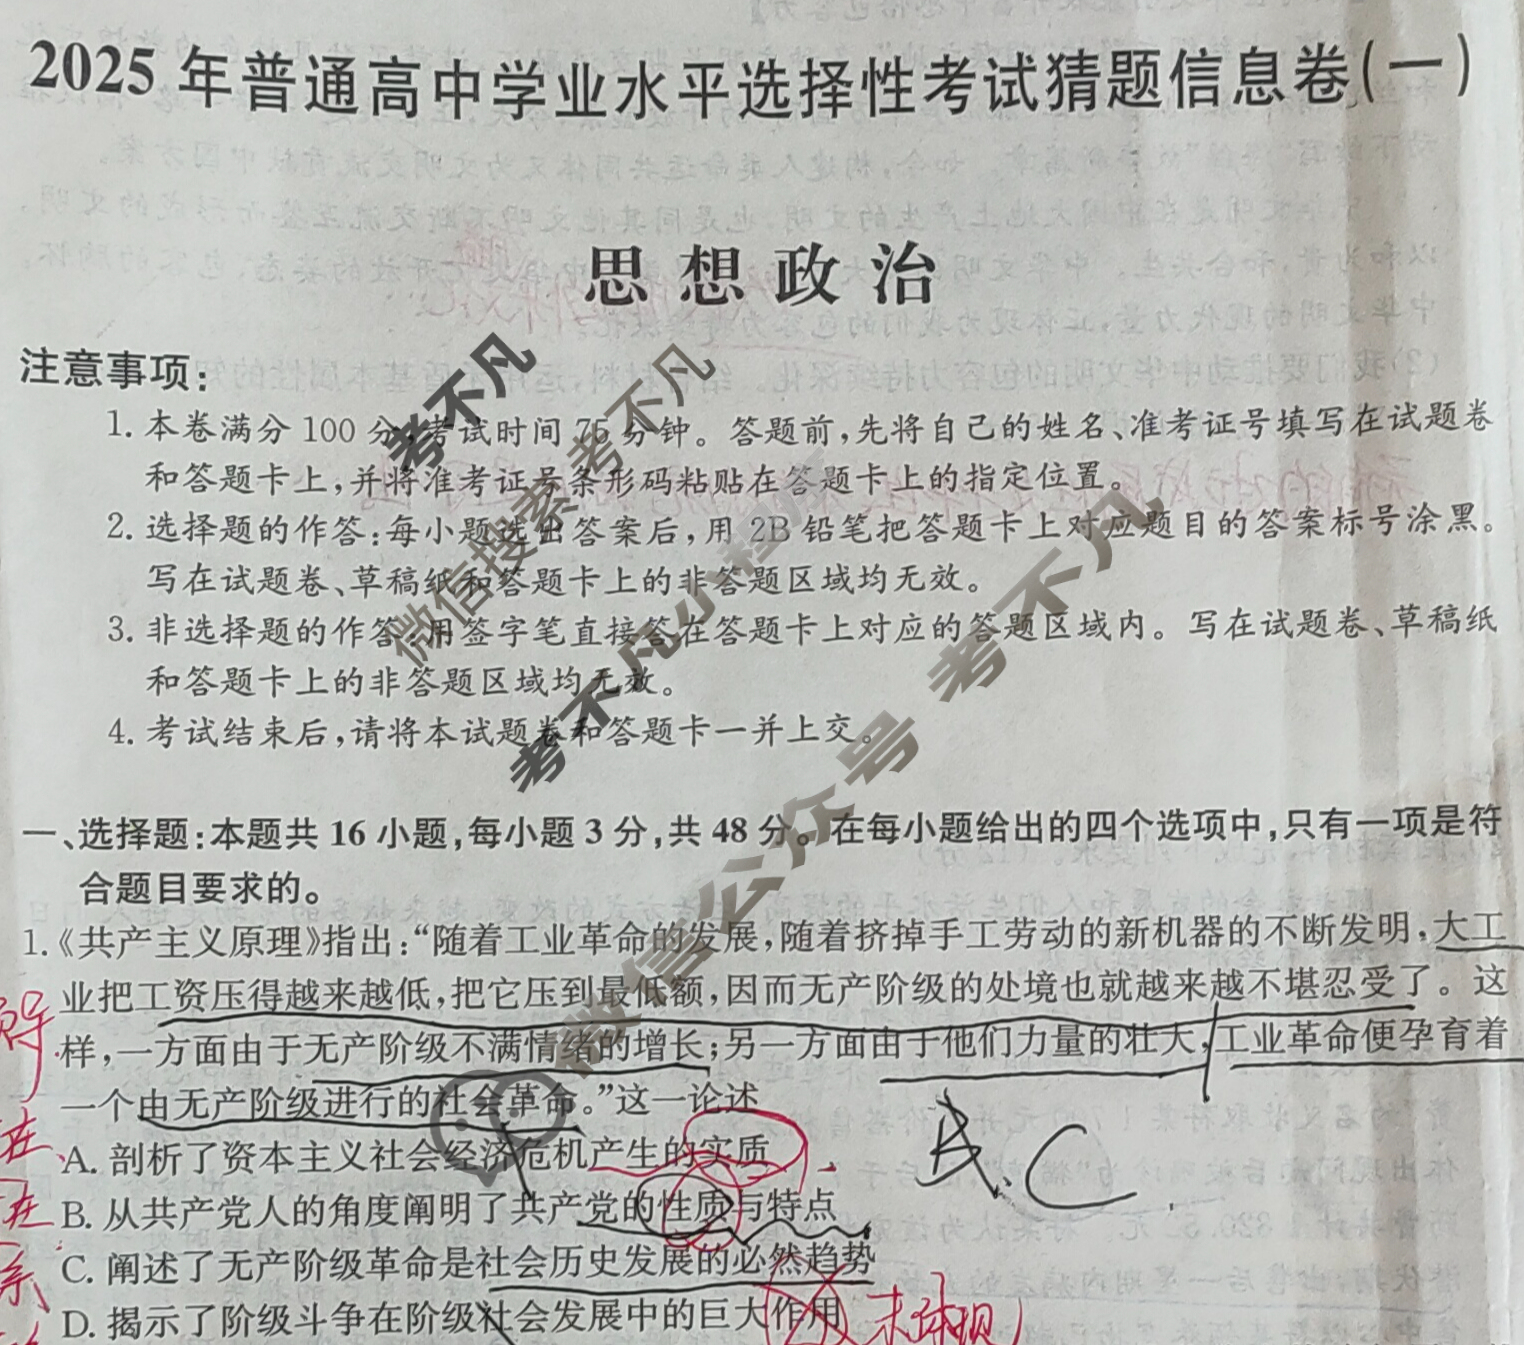 2025年普通高中学业水平选择性考试猜题信息卷(一)
思想政治
注意事项:
1. 本卷满分100分,考试时间75分钟。答题前,先将自己的姓名、准考证号填写在试题卷
和答题卡上,并将准考证号条形码粘贴在答题卡上的指定位置。
2. 选择题的作答:每小题选出答案后,用2B铅笔把答题卡上对应题目的答案标号涂黑。
写在试题卷、草稿纸和答题卡上的非答题区域均无效。
3. 非选择题的作答:用签字笔直接答在答题卡上对应的答题区域内。写在试题卷、草稿纸
和答题卡上的非答题区域均无效。
4. 考试结束后,请将本试题卷和答题卡一并上交。
考不凡
微信搜索 考不凡
考不凡小程序
微信公众号 考不凡
一、选择题:本题共16小题,每小题3分,共48分。在每小题给出的四个选项中,只有一项是符
合题目要求的。
1.《共产主义原理》指出:“随着工业革命的发展,随着挤掉手工劳动的新机器的不断发明,大工
业把工资压得越来越低,把它压到最低额,因而无产阶级的处境也就越来越不堪忍受了。这
样,一方面由于无产阶级不满情绪的增长;另一方面由于他们力量的壮大,工业革命便孕育着
一个由无产阶级进行的社会革命。”这一论述
A. 剖析了资本主义社会经济危机产生的实质
B. 从共产党人的角度阐明了共产党的性质与特点
C. 阐述了无产阶级革命是社会历史发展的必然趋势
D. 揭示了阶级斗争在阶级社会发展中的巨大作用
C.
未体现
在
在
系